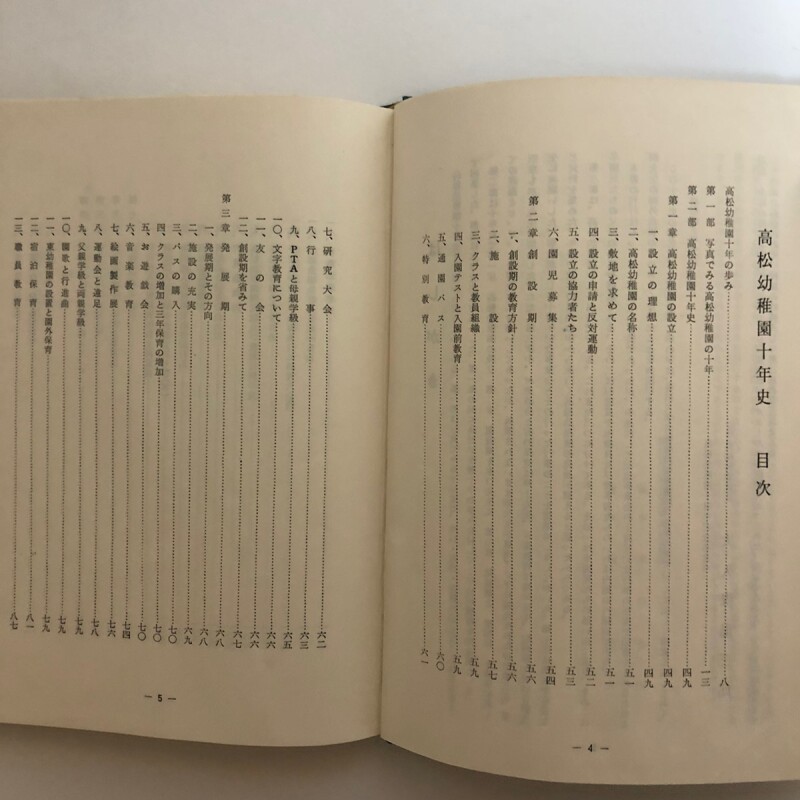 高松幼稚園十年史　目次
高松幼稚園十年の歩み……八
第一部　写真でみる高松幼稚園の十年……一三
第二部　高松幼稚園十年史……四九
第一章　高松幼稚園の設立……四九
一、設立の理想……四九
二、高松幼稚園の名称……五一
三、敷地を求めて……五一
四、設立の申請と反対運動……五二
五、設立の協力者たち……五三
六、園児募集……五四
第二章　創設期……五六
一、創設期の教育方針……五六
二、施設……五七
三、クラスと教員組織……五九
四、入園テストと入園前教育……五九
五、通園バス……六〇
六、特別教育……六一
— 4 —
七、研究大会……六二
八、行事……六三
九、PTAと母親学級……六五
一〇、文字教育について……六六
一一、友の会……六六
一二、創設期を省みて……六七
第三章　発展期……六八
一、発展期とその方向……六八
二、施設の充実……六九
三、バスの購入……七〇
四、クラスの増加と三年保育の増加……七〇
五、お遊戯会……七〇
六、音楽教育……七四
七、絵画製作展……七六
八、運動会と遠足……七八
九、父親学級と両親学級……七九
一〇、園歌と行進曲……七九
一一、東幼稚園の設置と園外保育……七九
一二、宿泊保育……八一
一三、職員教育……八七
— 5 —